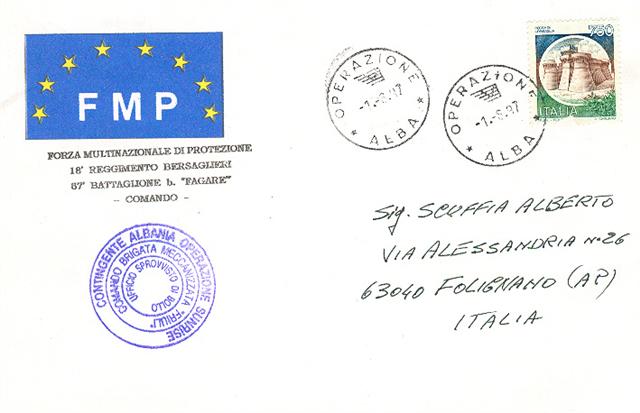 FMP
FORZA MULTINAZIONALE DI PROTEZIONE
18° REGGIMENTO BERSAGLIERI
67° BATTAGLIONE b. "FAGARE"
- COMANDO -
CONTINGENTE ALBANIA OPERAZIONE SUNRISE
COMANDO BRIGATA MECCANIZZATA "FRIULI"
UFFICIO SPROVVISTO DI BOLLO
OPERAZIONE
-1.-8.97
* ALBA *
OPERAZIONE
-1.-8.97
* ALBA *
750
ITALIA
Sig. SCUFFIA ALBERTO
VIA ALESSANDRIA n° 26
63040 FOLIGNANO (AP)
ITALIA